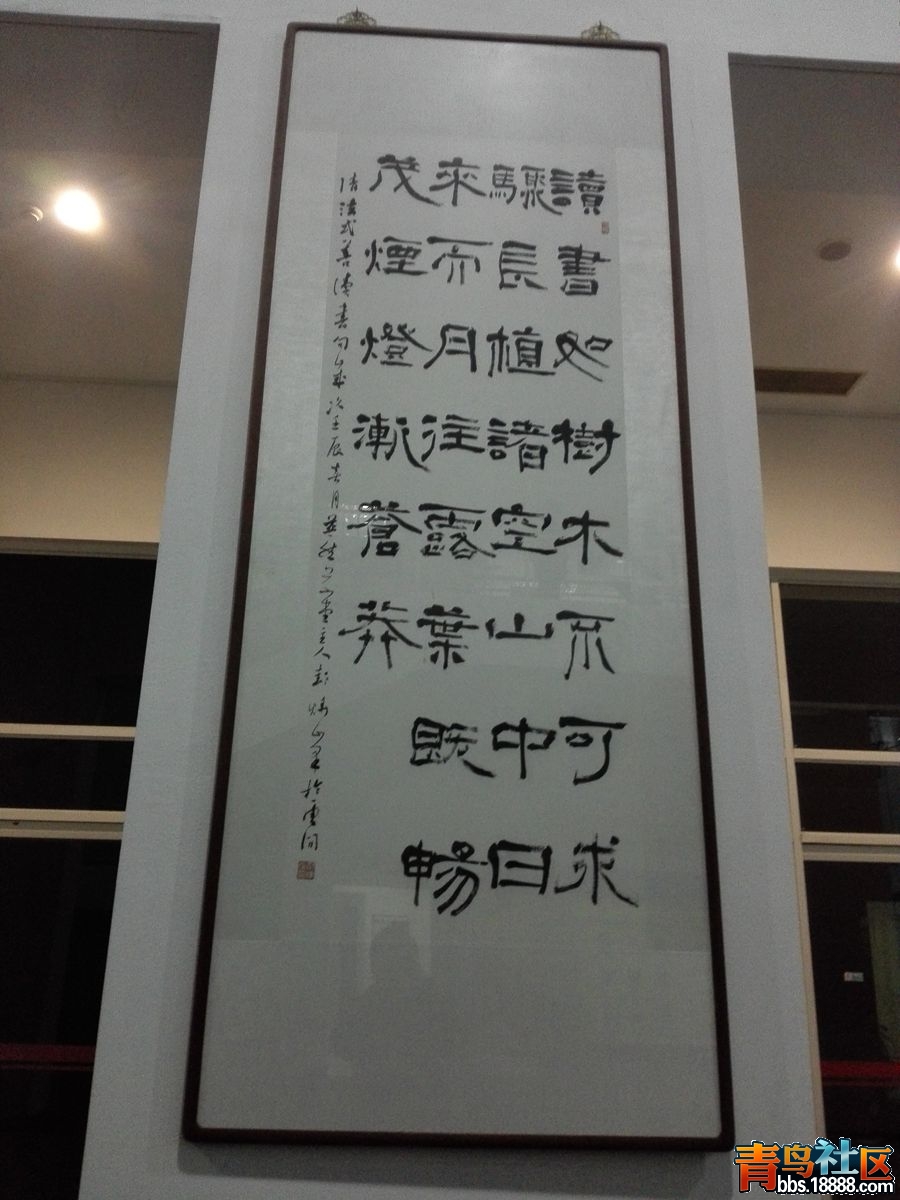 讀書如樹木不可求
驟長植諸空山中日
來而月往露葉既暢
茂煙燈漸蒼莽
清法式善讀書句 歲次壬辰春月 堂主人彭 於雲間
青鸟社区
bbs.18888.com